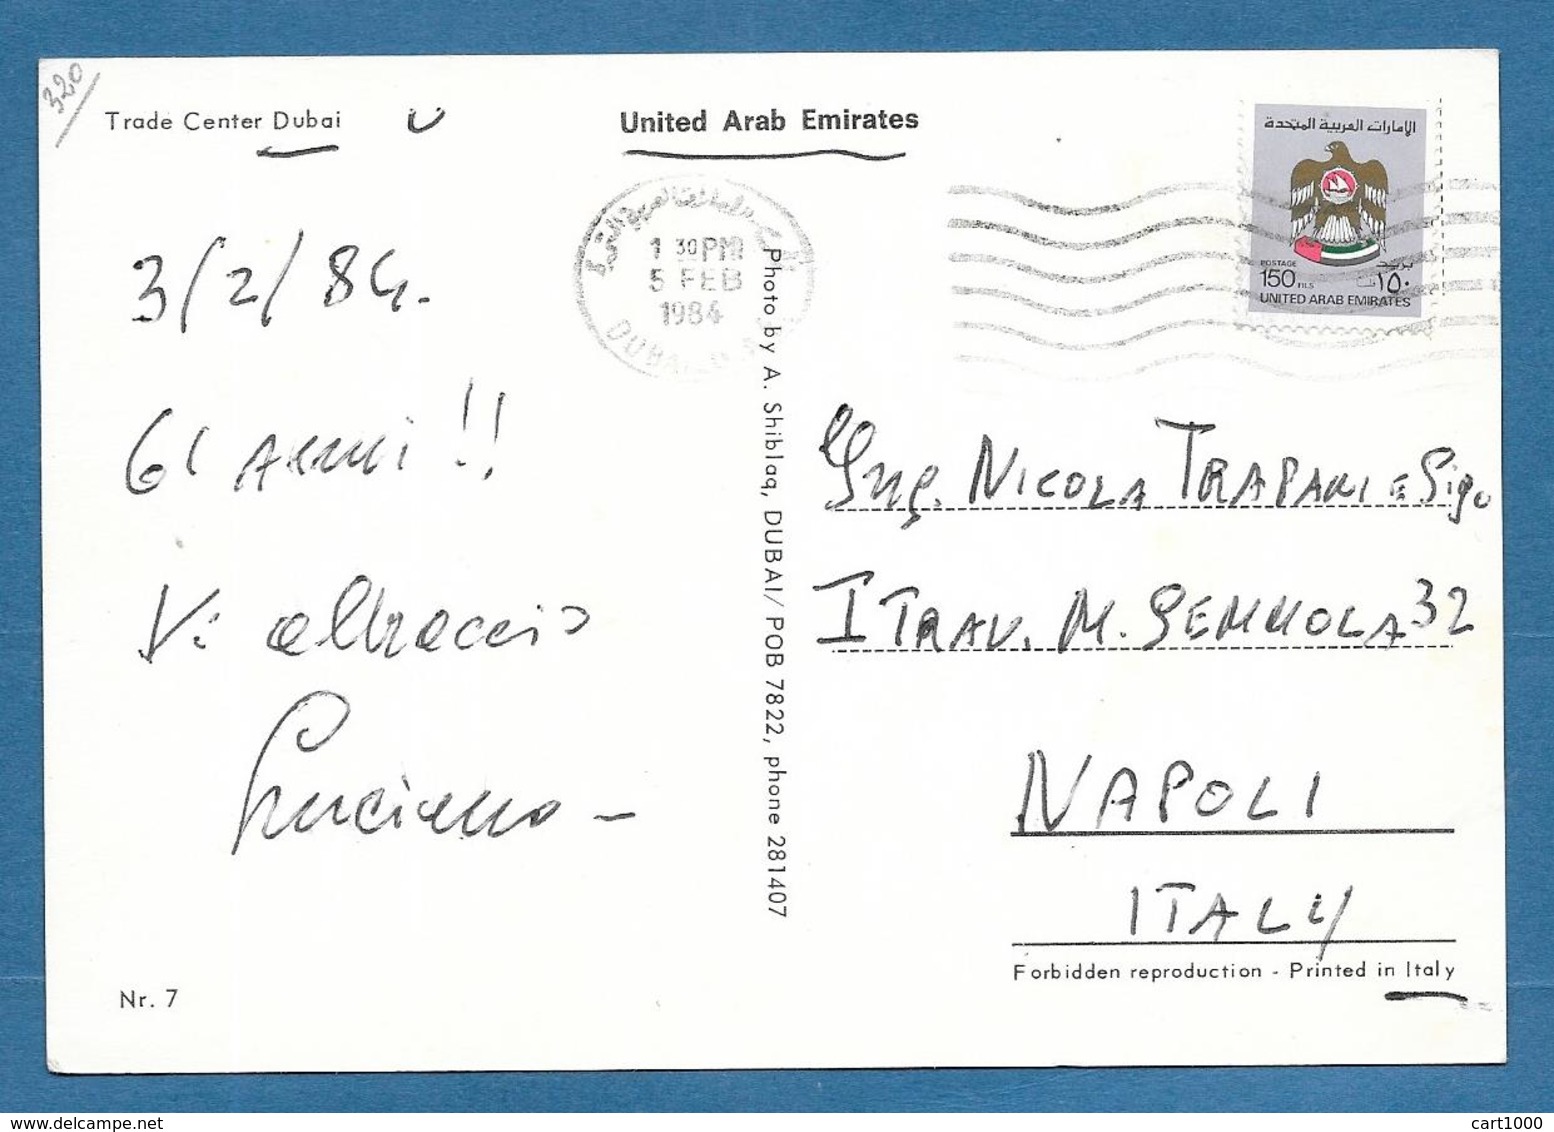 320
Trade Center Dubai
United Arab Emirates
الإمارات العربية المتحدة
POSTAGE
بريد
150 FILS
١٥٠ فلس
UNITED ARAB EMIRATES
1 30 PM
5 FEB
1984
DUBAI
3/2/84.
61 ANNI!!
Vi abbraccio
Luciano –
Photo by A. Shiblaq, DUBAI/ POB 7822, phone 281407
Ing. NICOLA TRAPANI e Sig.
I TRAV. M. SEMMOLA 32
NAPOLI
ITALY
Forbidden reproduction - Printed in Italy
Nr. 7
cart1000